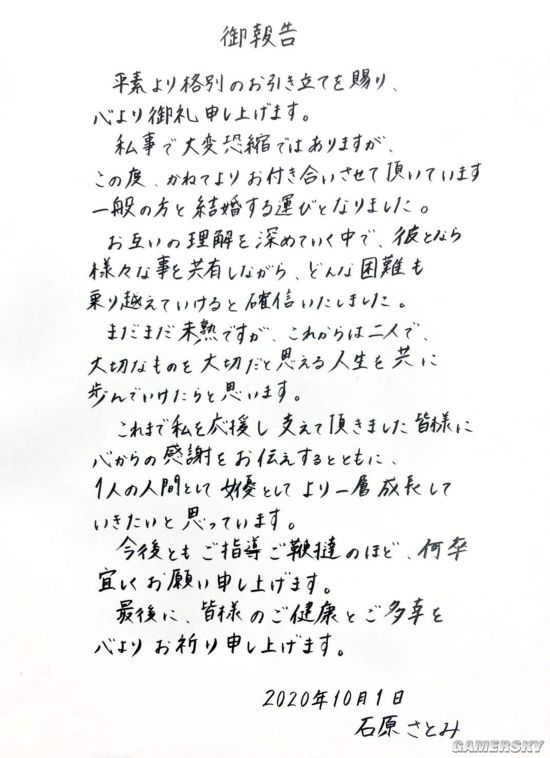 御報告
平素より格別のお引き立てを賜り、
心より御礼申し上げます。
私事で大変恐縮ではありますが、
この度、かねてよりお付き合いさせて頂いています
一般の方と結婚する運びとなりました。
お互いの理解を深めていく中で、彼となら
様々な事を共有しながら、どんな困難も
乗り越えていけると確信いたしました。
まだまだ未熟ですが、これからは二人で、
大切なものを大切だと思える人生を共に
歩んでいけたらと思います。
これまで私を応援し支えて頂きました皆様に
心からの感謝をお伝えするとともに、
1人の人間として女優としてより一層成長して
いきたいと思っています。
今後ともご指導ご鞭撻のほど、何卒
宜しくお願い申し上げます。
最後に、皆様のご健康とご多幸を
心よりお祈り申し上げます。
2020年10月1日
石原さとみ
GAMERSKY